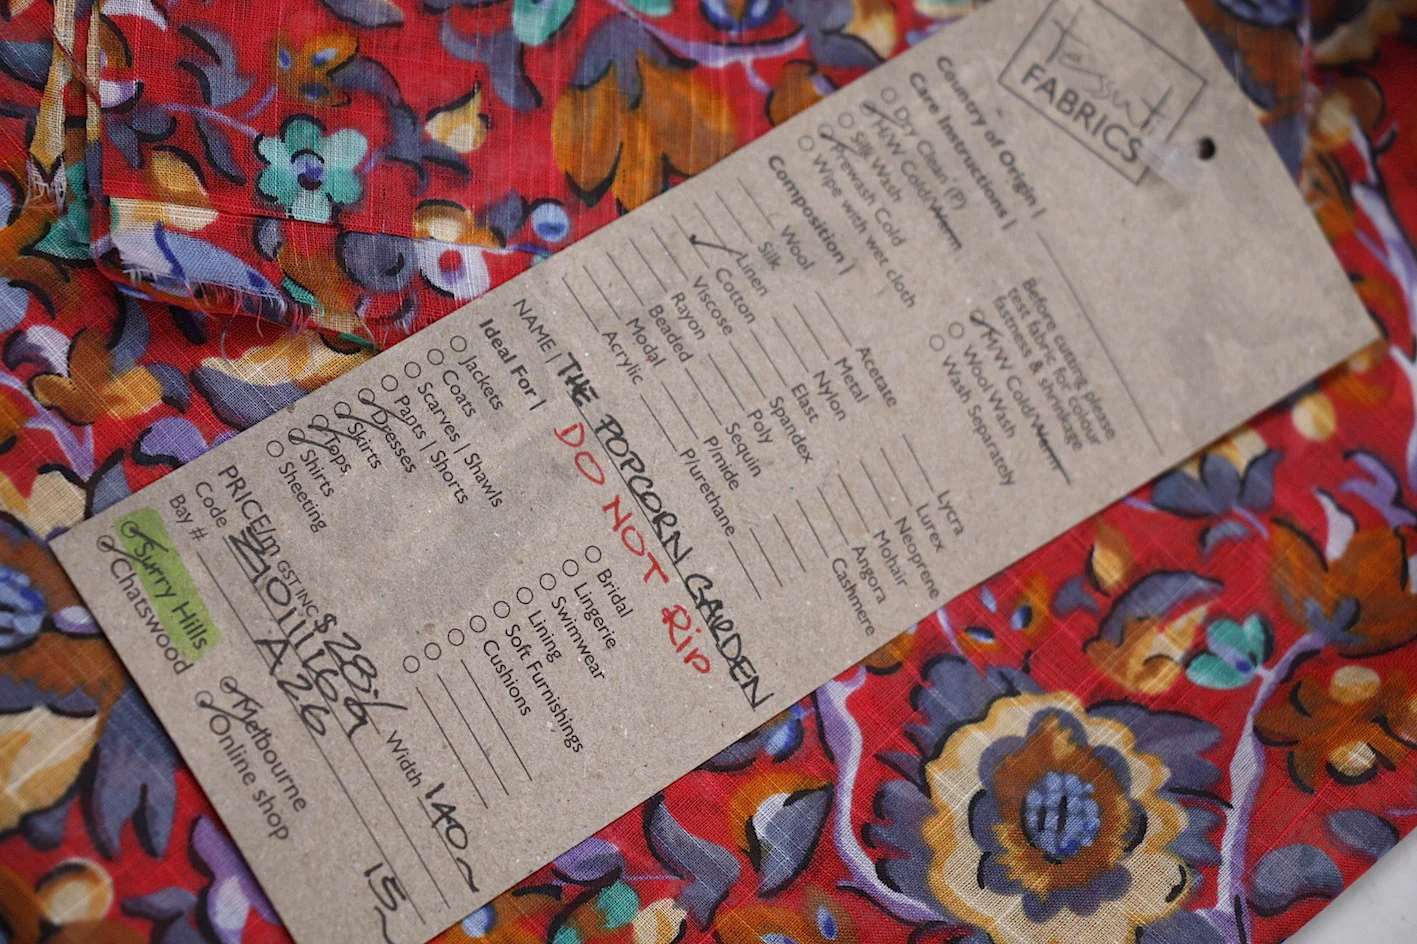 Tessuti
FABRICS
Country of Origin |
Care Instructions |
Dry Clean (P)
H/W Cold/Warm
Silk Wash
Prewash Cold
Wipe with wet cloth
Before cutting please
test fabric for colour
fastness & shrinkage
M/W Cold/Warm
Wool Wash
Wash Separately
Composition |
Wool
Silk
Linen
Cotton
Viscose
Rayon
Beaded
Modal
Acrylic
Acetate
Metal
Nylon
Elast
Spandex
Poly
Sequin
P/mide
P/urethane
Lycra
Lurex
Neoprene
Mohair
Angora
Cashmere
NAME | THE POPCORN GARDEN
DO NOT RIP
Ideal For |
Jackets
Coats
Scarves | Shawls
Pants | Shorts
Dresses
Skirts
Tops
Shirts
Sheeting
Bridal
Lingerie
Swimwear
Lining
Soft Furnishings
Cushions
PRICE/m GST INC $ 28/ Width 140
Code
Bay # A26 15
Surry Hills
Chatswood
Melbourne
Online shop